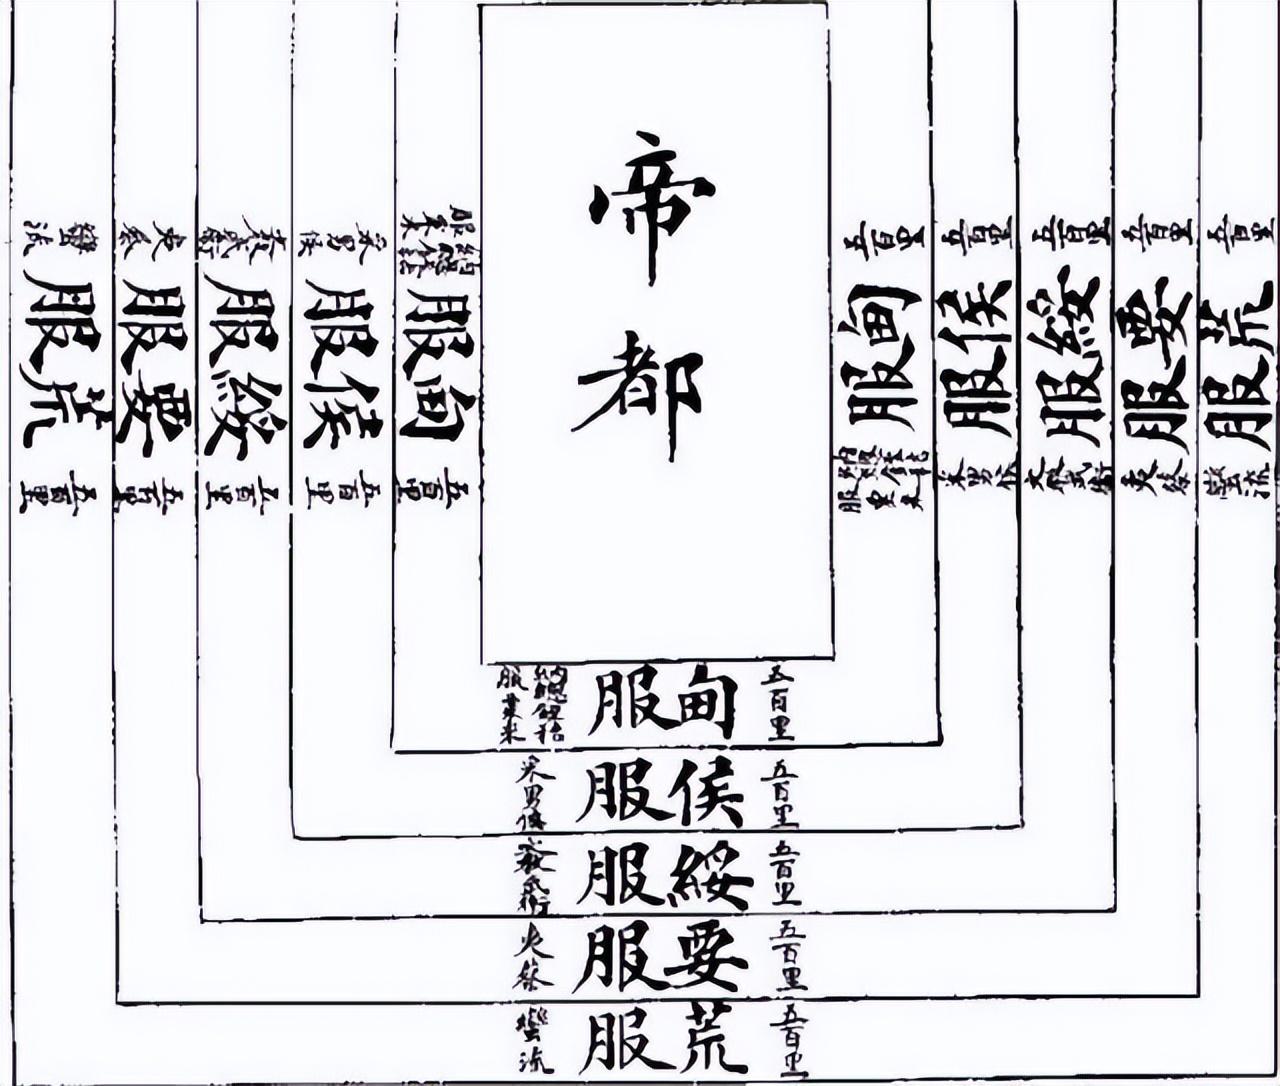 帝都
五百里
甸服
五百里
侯服
五百里
綏服
五百里
要服
五百里
荒服
五百里
甸服
納總銍秸
服粟米
五百里
侯服
采男侯
五百里
綏服
五百里
要服
夷蔡
五百里
荒服
蠻流
五百里
甸服
五百里
侯服
采男侯
五百里
綏服
五百里
要服
夷蔡
五百里
荒服
蠻流